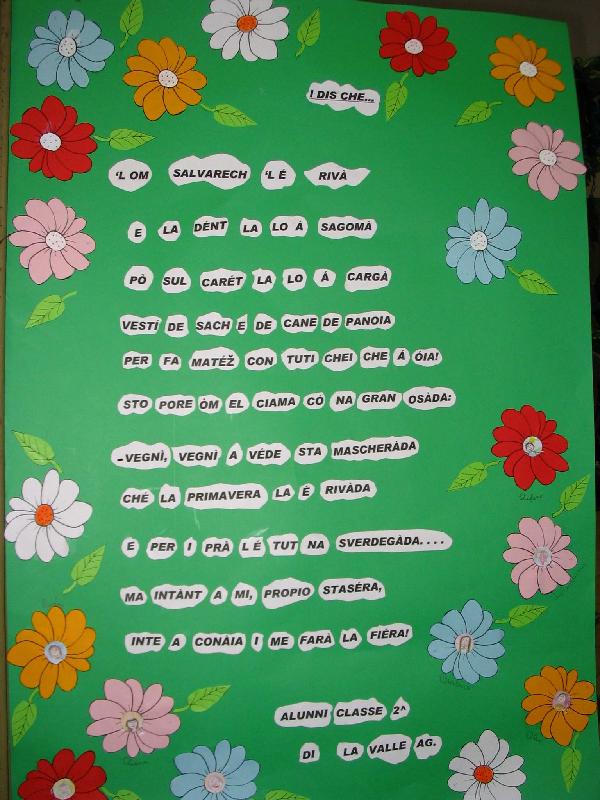 ! DIS CHE...
'L OM SALVARECH 'L É RIVÀ
E LA DÉNT LA LO À SAGOMÀ
PÒ SUL CARÉT LA LO Á CARGÀ
VESTÍ DE SACH E DE CANE DE PANOIA
PER FA MATÉŽ CON TUTI CHEI CHE À ÓIA!
STO PORE ÒM EL CIAMA CÓ NA GRAN OSÀDA:
-VEGNÌ, VEGNÌ A VÉDE STA MASCHERÀDA
CHÉ LA PRIMAVERA LA É RIVÀDA
E PER I PRÀ L É TUT NA SVERDEGÀDA....
MA INTÀNT A MI, PROPIO STASÉRA,
INTE A CONÀIA I ME FARÀ LA FIÉRA!
ALUNNI CLASSE 2^
DI LA VALLE AG.